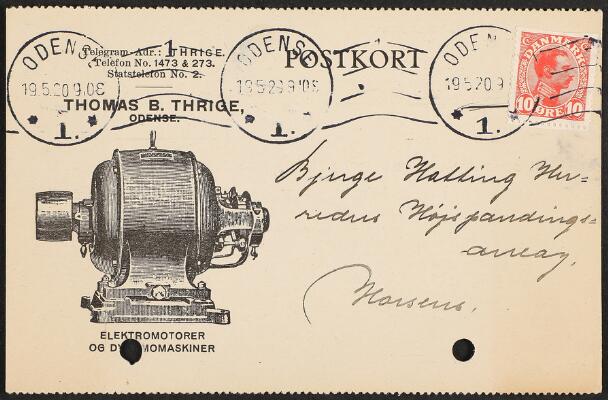 Telegram-Adr.: THRIGE.
Telefon No. 1473 & 273.
Statstelefon No. 2.
THOMAS B. THRIGE,
ODENSE.
POSTKORT
ODENSE
19.5.20 9.0E
1.
ODENSE
19.5.20 9.0E
1.
ODEN
19.5.20 9
1.
1
DANMARK
10 ØRE 10
Bjerge Hatting Her-
reders Højspændings-
anlæg,
Horsens.
ELEKTROMOTORER
OG DY MOMASKINER